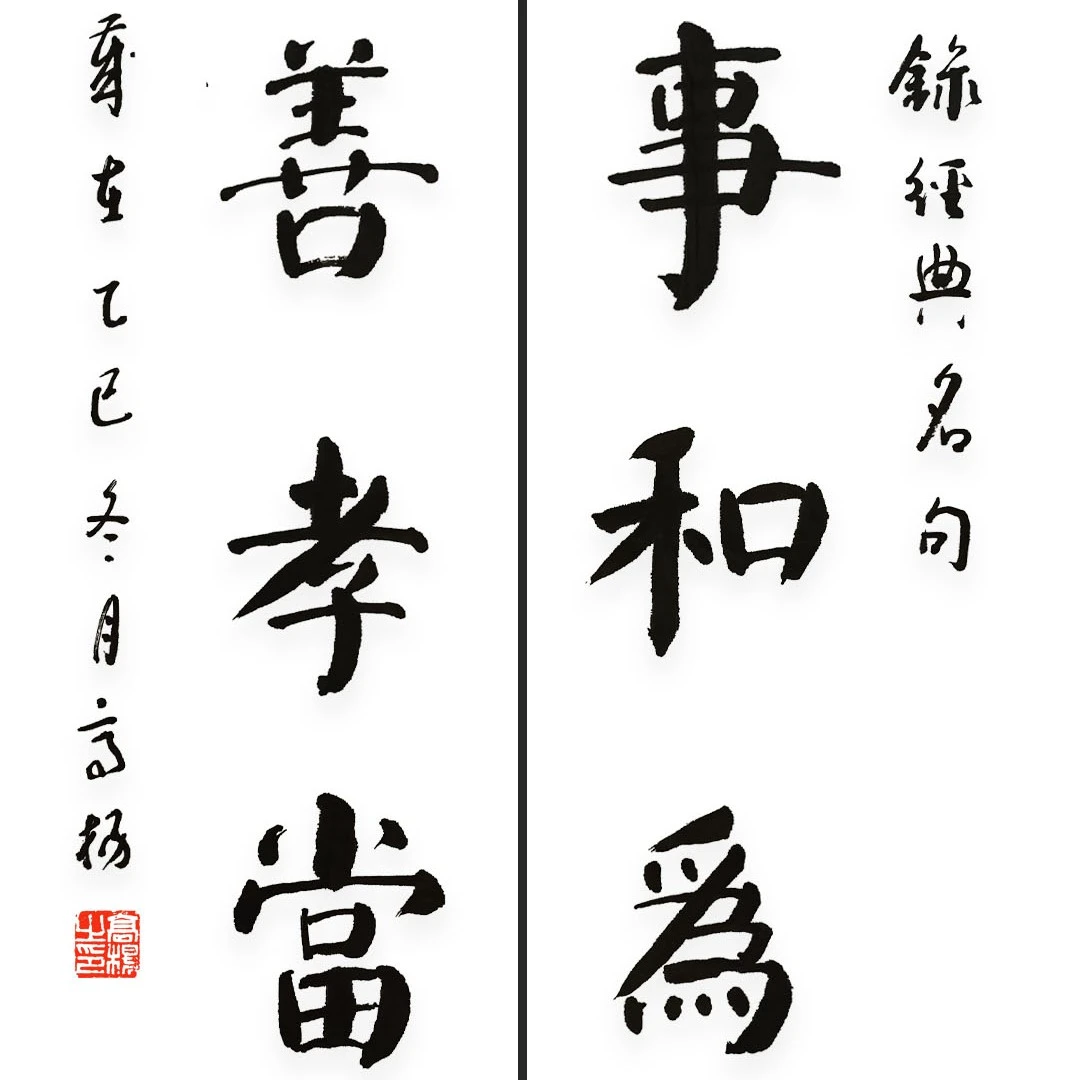 錄經典名句
事和爲
善孝當
歲在乙巳冬月高楊
高楊之印